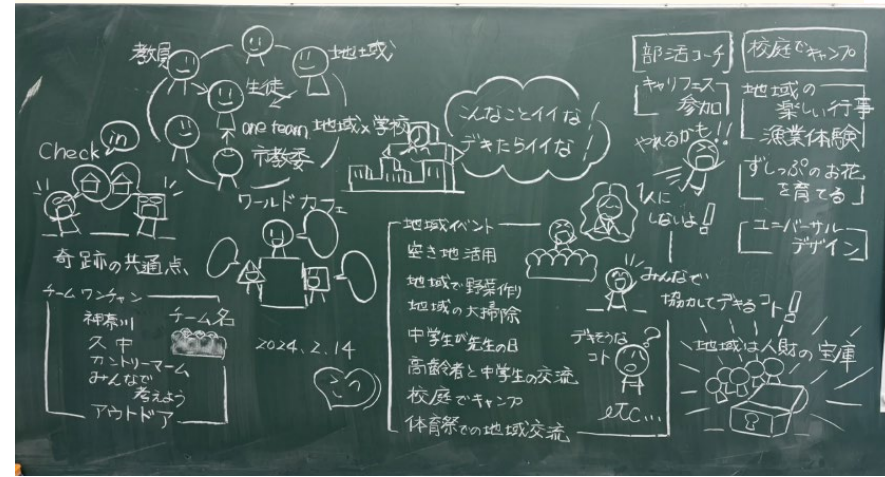 教員
地域
生徒
one team 地域×学校
市教委
Check in
奇跡の共通点
ワールドカフェ
チームワンチャン
チーム名
神奈川
久中
カントリーマーム
みんなで
考えよう
アウトドア
2024.2.14
こんなことイイな
デキたらイイな
地域イベント
空き地活用
地域で野菜作り
地域の大掃除
中学生が先生の日
高齢者と中学生の交流
校庭でキャンプ
体育祭での地域交流
デキそうな
コト
?
etc...
部活コーチ
キャリフェス
参加
やれるかも!!
1人に
しないよ!
みんなで
協力してデキるコト!
校庭でキャンプ
地域の
楽しい行事
漁業体験
ずしっぷのお花
を育てる
ユニバーサル
デザイン
地域は人財の宝庫